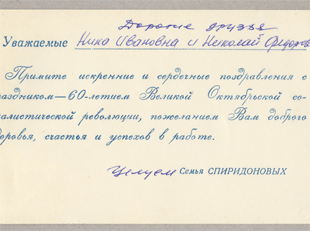 Дорогие друзья
Уважаемые Нина Ивановна и Николай Федоров
Примите искренние и сердечные поздравления с
раздником—60-летием Великой Октябрьской со-
алистической революции, пожеланием Вам доброго
доровья, счастья и успехов в работе.
Целуем Семья СПИРИДОНОВЫХ